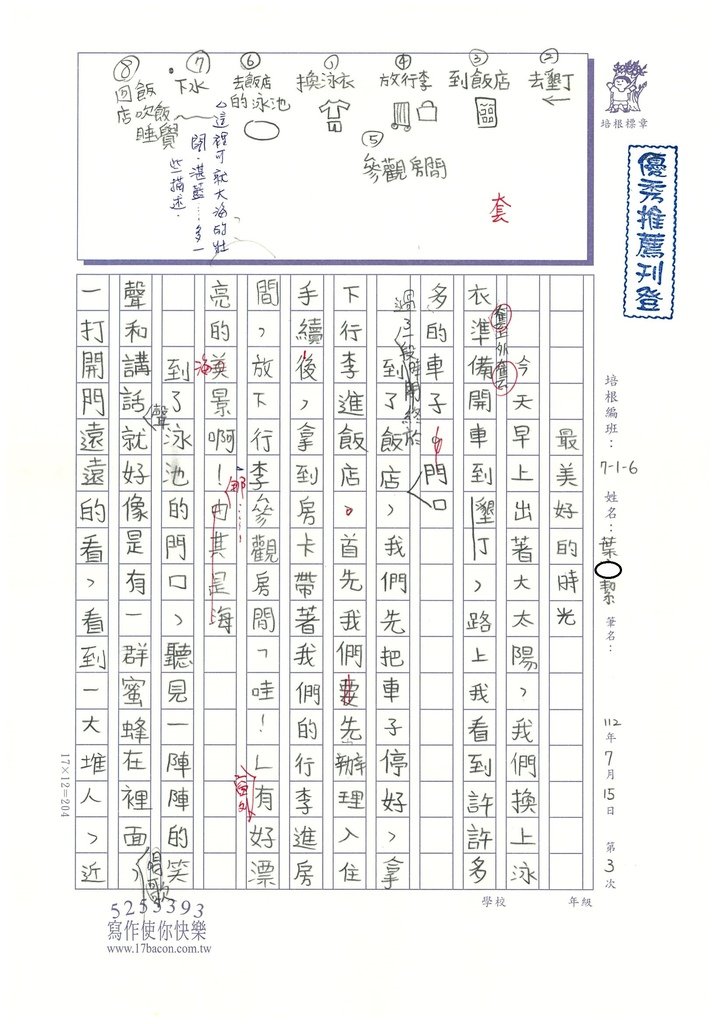 ② 去墾丁
③ 到飯店
④ 放行李
⑤ 參觀房間
換泳衣
⑥ 去飯店的泳池
⑦ 下水
⑧ 回飯店吹飯睡覺
這裡可就大海的壯闊、湛藍……多一些描述.
套
培根標章
優秀推薦刊登
培根編班:7-1-6 姓名:葉 絜 筆名:
112年7月15日 第3次
學校 年級
最美好的時光
今天早上出著大太陽,我們換上泳
衣準備開車到墾丁,路上我看到許許多
多的車子
門口
過了一段時間終於
到了飯店,我們先把車子停好,拿
下行李進飯店。首先我們要先辦理入住
手續後,拿到房卡帶著我們的行李進房
間,放下行李參觀房間「哇!」有好漂
窗外
亮的美景啊!由其是海
海
那……
到了泳池的門口,聽見一陣陣的笑
聲和講話就好像是有一群蜜蜂在裡面,
聲
唱歌
一打開門遠遠的看,看到一大堆人,近
17×12=204
5253393
寫作使你快樂
www.17bacon.com.tw